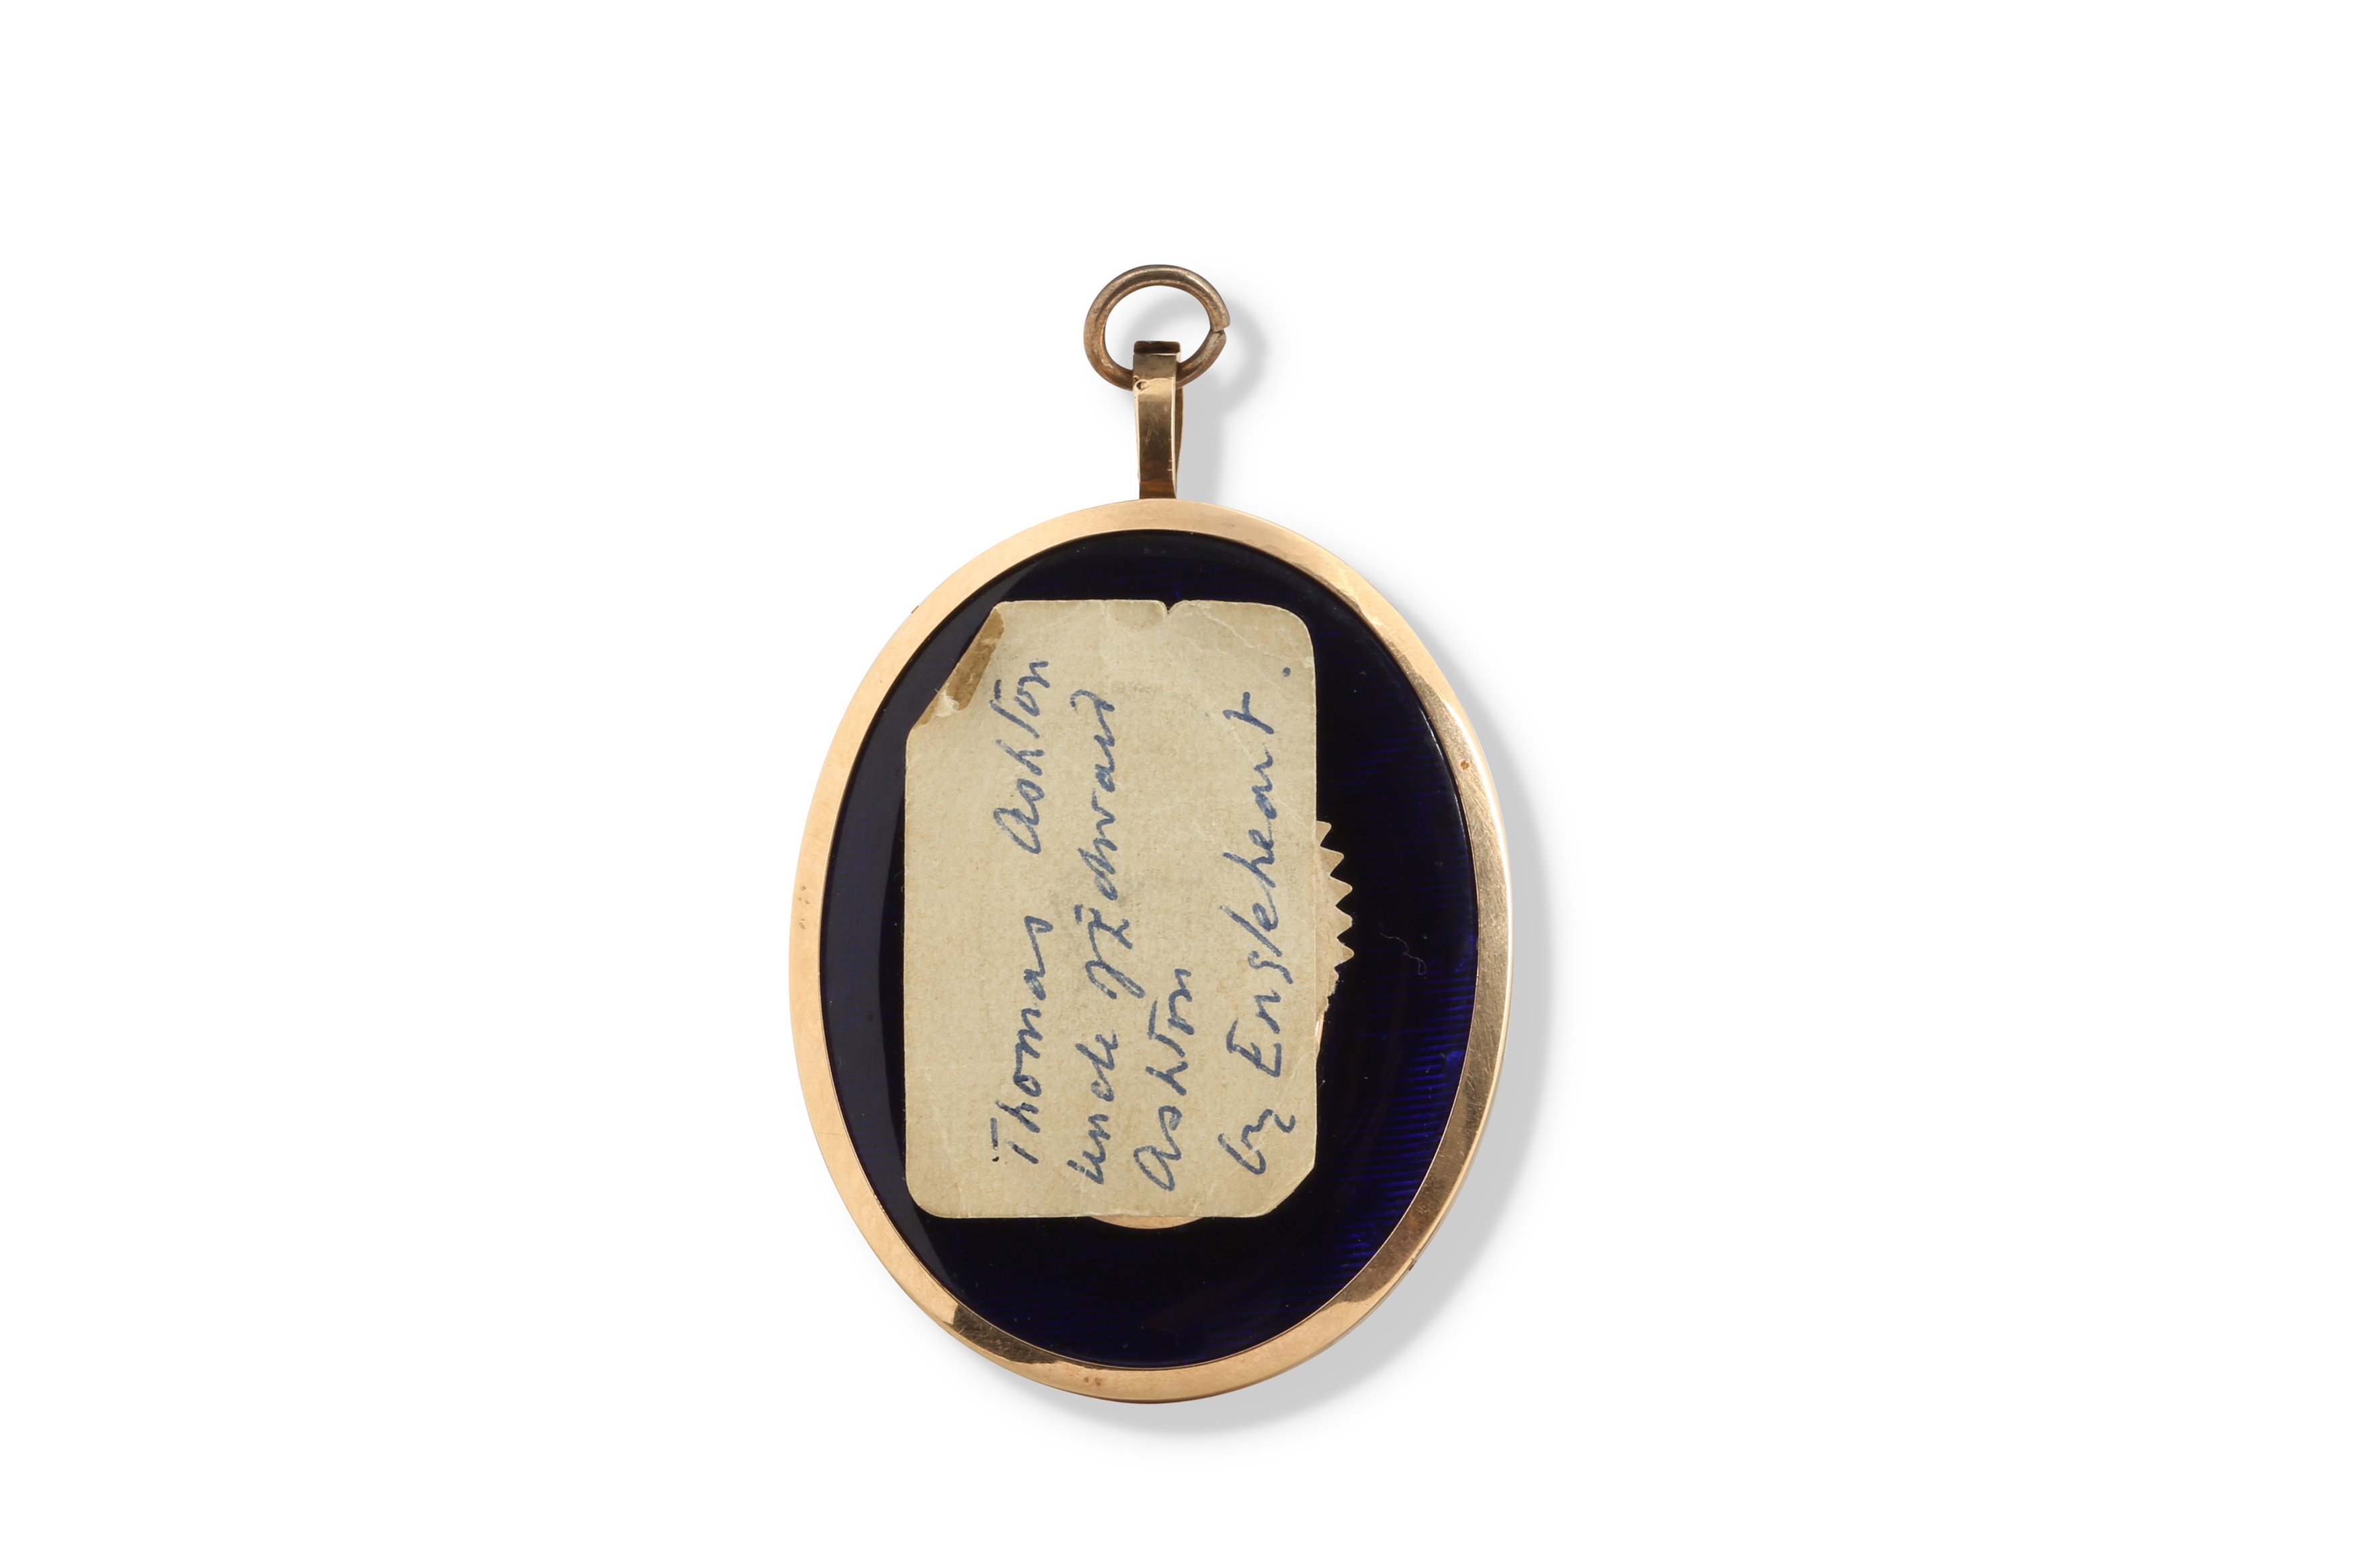 Thomas Ashton
uncle of Edward
Ashton
by Engleheart.